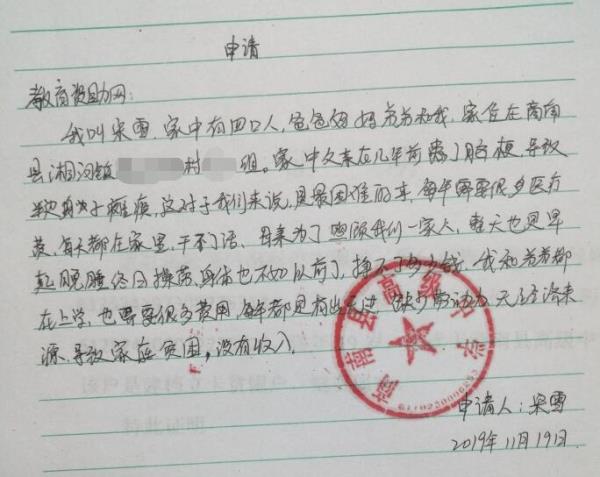 申请
教育资助网:
我叫宋雪,家中有四口人,爸爸妈妈弟弟和我,家住在商南
县湘河镇 村 组。家中父亲在几年前患了脑梗,导致
半身处于瘫痪,这对于我们来说,是最困难的事,每年需要很多医疗
费,每天都在家里,干不了活、母亲为了照顾我们一家人,整天也是早
起晚睡终日操劳,身体也不如以前了,挣不了多少钱。我和弟弟都
在上学,也需要很多费用,每年都是有出无进,缺少劳动力,无经济来
源,导致家庭贫困,没有收入。
商南县高级中学
申请人:宋雪
2019年11月19日